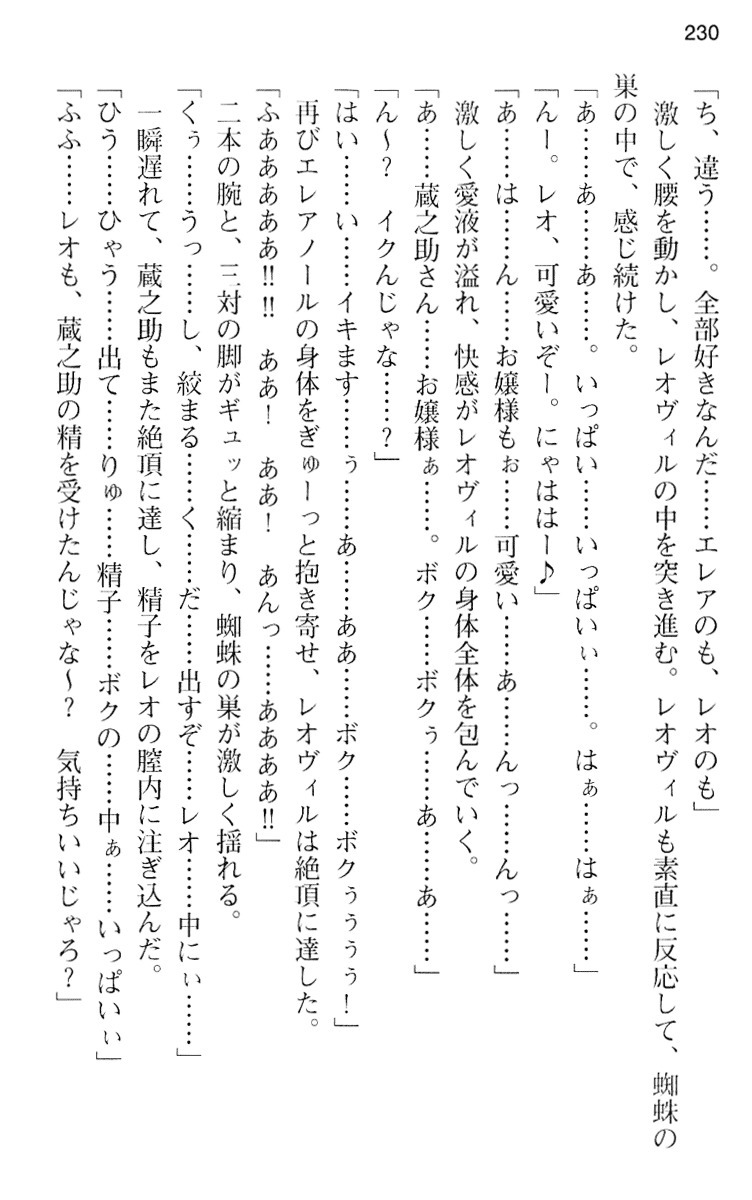 230
「ち、違う……。全部好きなんだ……エレアのも、レオのも」
激しく腰を動かし、レオヴィルの中を突き進む。レオヴィルも素直に反応して、蜘蛛の
巣の中で、感じ続けた。
「あ……あ……あ……。いっぱい……いっぱいぃ……。はぁ……はぁ……」
「んー。レオ、可愛いぞー。にゃははー♪」
「あ……は……ん……お嬢様もぉ……可愛い……あ……んっ……んっ……」
激しく愛液が溢れ、快感がレオヴィルの身体全体を包んでいく。
「あ……蔵之助さん……お嬢様ぁ……。ボク……ボクぅ……あ……あ……」
「ん～？　イクんじゃな……？」
「はい……い……イキます……ぅ……あ……ああ……ボク……ボクぅぅぅぅ！」
再びエレアノールの身体をぎゅーっと抱き寄せ、レオヴィルは絶頂に達した。
「ふああああぁ!!!　ああ！　ああ！　あんっ……ああああ!!」
二本の腕と、三対の脚がギュッと縮まり、蜘蛛の巣が激しく揺れる。
「くぅ……うっ……し、絞まる……く……だ……出すぞ……レオ……中にぃ……」
一瞬遅れて、蔵之助もまた絶頂に達し、精子をレオの膣内に注ぎ込んだ。
「ひう……ひゃう……出て……りゅ……精子……ボクの……中ぁ……いっぱいぃ」
「ふふ……レオも、蔵之助の精を受けたんじゃな～？　気持ちいいじゃろ？」